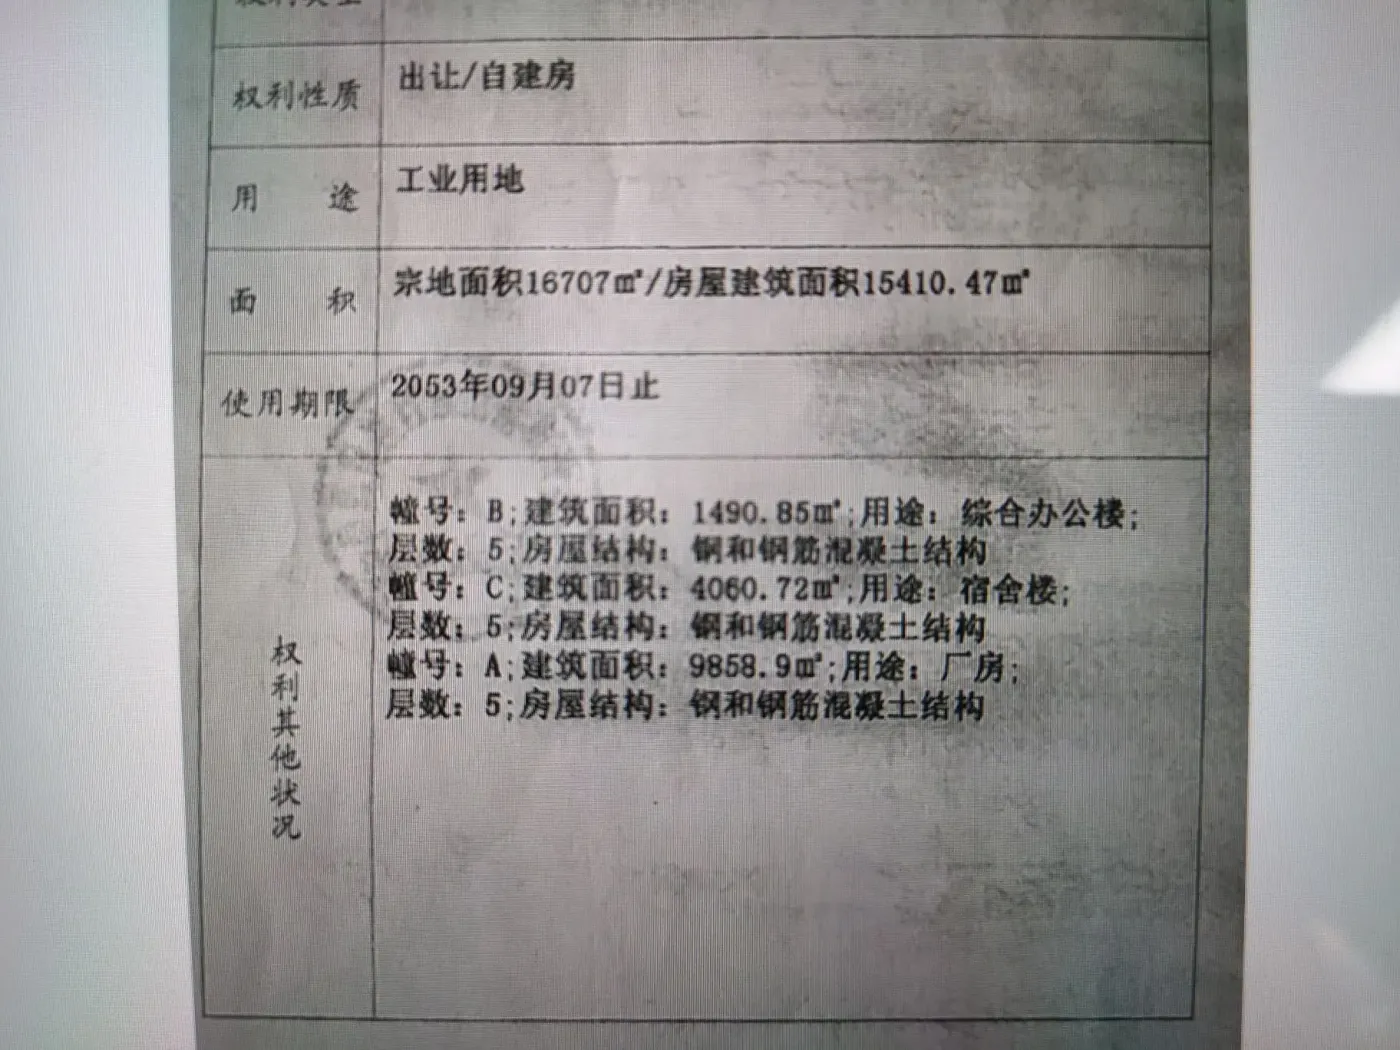 权利类型
权利性质 出让/自建房
用途 工业用地
面积 宗地面积16707㎡/房屋建筑面积15410.47㎡
使用期限 2053年09月07日止
权利其他状况
幢号：B;建筑面积：1490.85㎡;用途：综合办公楼;
层数：5;房屋结构：钢和钢筋混凝土结构
幢号：C;建筑面积：4060.72㎡;用途：宿舍楼;
层数：5;房屋结构：钢和钢筋混凝土结构
幢号：A;建筑面积：9858.9㎡;用途：厂房;
层数：5;房屋结构：钢和钢筋混凝土结构